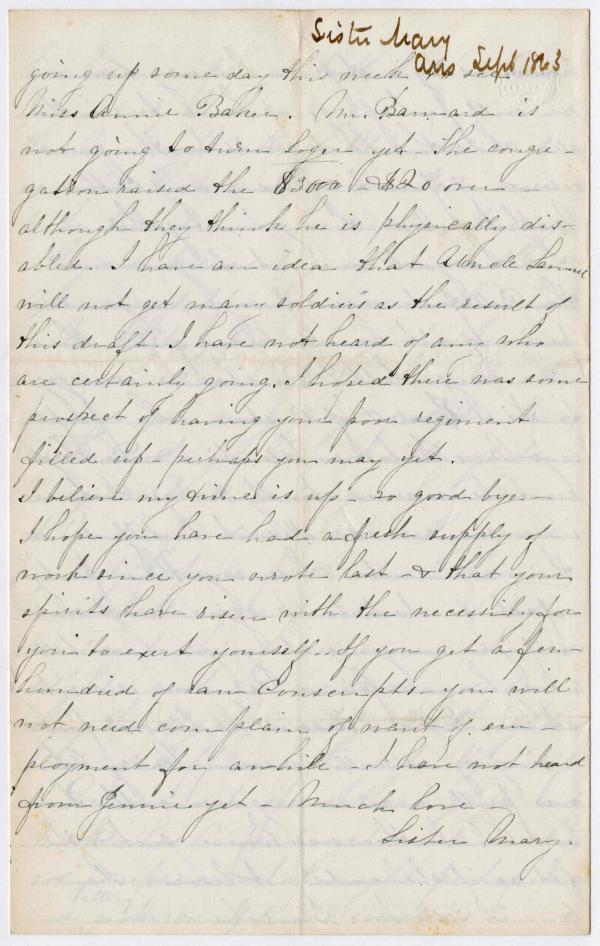 Sister Mary
Ans Sept 1863
going up some day this week to see
Miss Annie Baker. Mr. Barnard is
not going to turn loger yet. The congre-
gation raised the $3000 - $20 over -
although they think he is physically dis-
abled. I have an idea that Uncle Samuel
will not get many soldiers as the result of
this draft. I have not heard of any who
are certainly going. I hoped there was some
prospect of having your poor regiment
filled up - perhaps you may yet.
I believe my time is up - so good bye -
I hope you have had a fresh supply of
work since you wrote last - & that your
spirits have risen with the necessity for
you to exert yourself. If you get a few
hundred of raw Conscripts - you will
not need complain of want of em-
ployment for awhile - I have not heard
from Jennie yet - Much love -
Sister Mary.